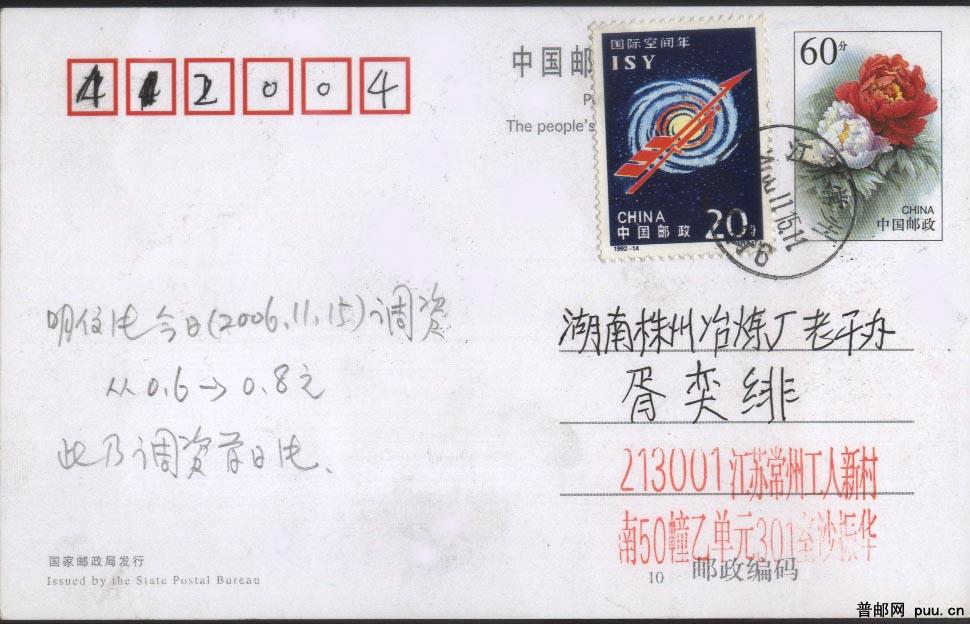 412004
中国邮
P
The people's
国际空间年
ISY
CHINA
中国邮政
20分
1992-14
60分
CHINA
中国邮政
江苏 常州
2006.11.15.11
明信片今日(2006.11.15)调资
从0.6→0.8元
此乃调资首日片、
湖南株州冶炼厂老干办
胥奕绯
213001江苏常州工人新村
南50幢乙单元301室沙振华
国家邮政局发行
Issued by the State Postal Bureau
10 邮政编码
普邮网 puu.cn